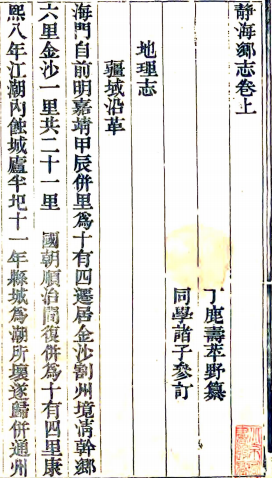 静海鄉志卷上
丁鹿壽苹野纂
同學諸子參訂
地理志
疆域沿革
海門自前明嘉靖甲辰併里爲十有四遷居金沙割州境清幹鄉
六里金沙一里共二十一里　國朝順治間復併爲十有四里康
熙八年江潮內蝕城廬半圮十一年縣城爲潮所壞遂歸併通州